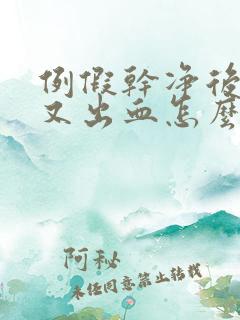 例假幹净後
又出血怎麽
阿秘
未经同意禁止转载